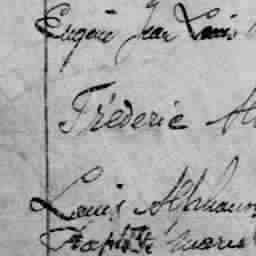 Eugène Jean Louis
Fréderic Al
Louis Alphons
Bapt^te Marie